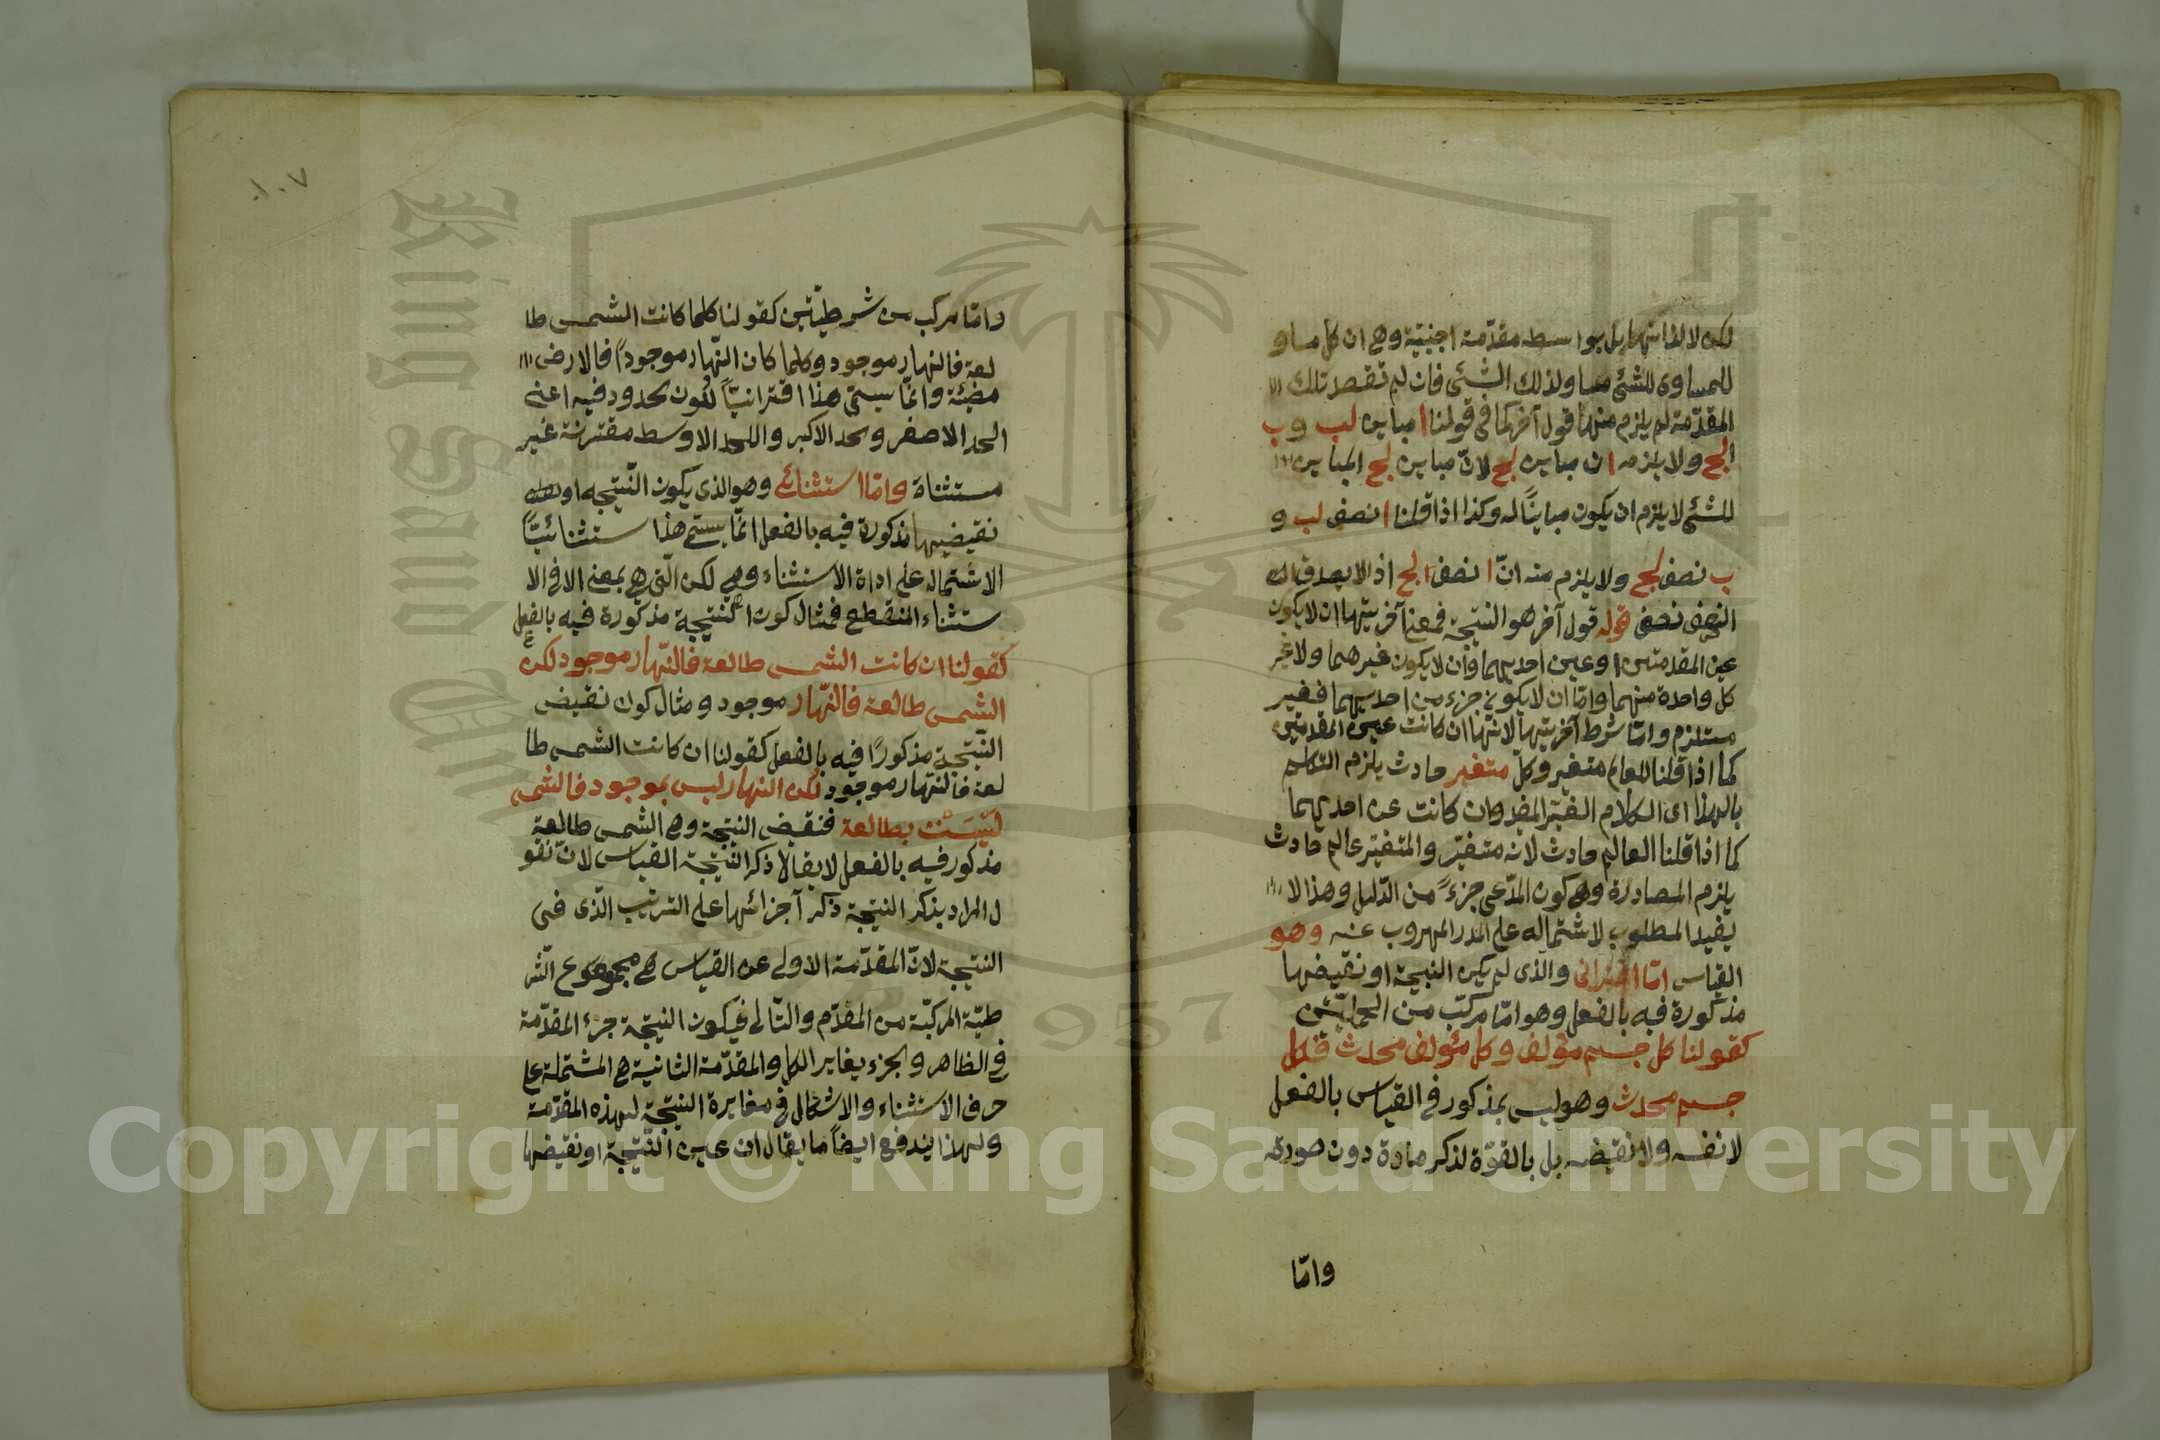 لكن لا لذاتها بل بواسطه مقدّمة اجنبيّة وهى ان كل مساو
للمساوى للشئ مساو لذلك الشئ فان لم تقصد تلك
المقدّمة لم يلزم منها قول آخر كما فى قولنا ا مباين لب وب
لج ولا يلزم ان مباين لج لانّ مباين لج المباين
للشئ لا يلزم ان يكون مباينًا له وكذا اذا قلنا ا نصف لب و
ب نصف لج ولا يلزم منه انّ ا نصف لج اذ لا يصدق ان
النصف نصف قوله قول آخر هو النتيجة فمعنا آخريتها ان لا يكون
عين المقدمتين او عين احديهما وان لا يكون غيرهما ولا غير
كل واحدة منهما واما ان لا يكون جزء من احديهما فغير
مستلزم وانما شرط آخريتها لانها ان كانت عين المقدمتين
كما اذا قلنا العالم متغير وكل متغير حادث يلزم التكلم
بالهذا اى الكلام الغير المفيد وان كانت عين احديهما
كما اذا قلنا العالم حادث لانه متغيّر والمتغير عالم حادث
يلزم المصادرة وهى كون المدّعى جزءً من الدّليل وهذا لا
يفيد المطلوب لاشتماله على الدور المهروب عنه وهو
القياس امّا اقترانى والذى لم يكن النتيجة او نقيضها
مذكورة فيه بالفعل وهو امّا مركّب من الحمليّتين
كقولنا كل جسم مؤلف وكل مؤلف محدث فكل
جسم محدث وهو ليس بمذكور فى القياس بالفعل
لا نفسه ولا نقيضه بل بالقوّة لذكر مادة دون صورته
وامّا
١٠٧
وامّا مركب من شرطيّتين كقولنا كلما كانت الشمس طا
لعة فالنهار موجود وكلما كان النّهار موجودًا فالارض
مضيئة وانّما يسمّى هذا اقترانيًّا لكون حدود فيه اعنى
الحد الاصغر وحد الاكبر والحد الاوسط مقترنة غير
مستثناة وامّا استثنائى وهو الذى يكون النّتيجه او
نقيضها مذكورة فيه بالفعل انّما يسمّى هذا ستثنائيًّا
الاشتماله على اداة الاستثناء وهى لكن الّتى هى بمعنى الا فى الا
ستثناء المنقطع فمثال كون النتيجة مذكورة فيه بالفعل
كقولنا ان كانت الشمس طالعة فالنّهار موجود لكن
الشّمس طالعة فالنّهار موجود ومثال كون نقيض
النّتيجة مذكورًا فيه بالفعل كقولنا ان كانت الشمس طا
لعة فالنّهار موجود لكن النهار ليس بموجود فالشمس
ليّسَتْ بطالعة فنقيض النتيجة وهى الشمس طالعة
مذكور فيه بالفعل لا يقال ذكر النتيجة القياس لانّ نقو
ل المراد بذكر النتيجة ذكر آجزائها على الترتيب الّذى فى
النتيجة لانّ المقدّمة الاولى عن القياس هى مجموع الشر
طيّة المركبّة من المقدّم والتّالى فيكون النتيجة جزء المقدّمة
فى الظاهر والجزء يغاير الكل والمقدّمة الثانية هى المشتملة على
حرف الاستثناء والاشكال فى مغايرة النتيجة لهذه المقدّمة
ولهذا يندفع ايضًا ما يقال ان عين النّتيجة او نقيضها